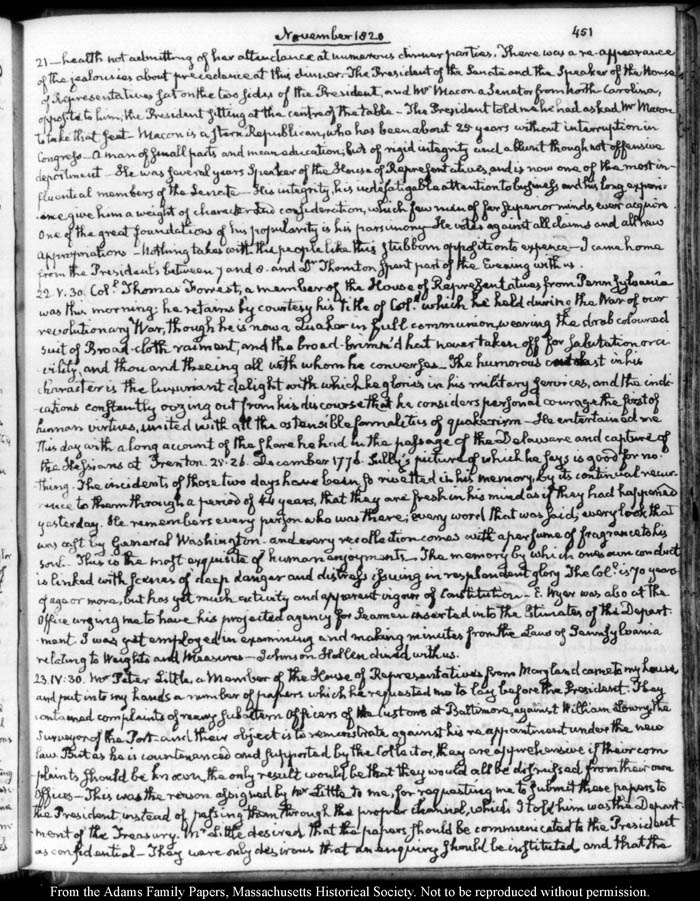 November 1820
451
21 — health not admitting of her attendance at numerous dinner parties. There was a re-appearance
of the jealousies about precedence at this dinner. The President of the Senate and the Speaker of the House
of Representatives sat on the two sides of the President, and Mr Macon a Senator from North-Carolina,
opposite to him, the President sitting at the centre of the table — The President told me he had asked Mr Macon
to take that seat — Macon is a stern Republican, who has been about 25 years without interruption in
Congress — A man of small parts and mean education, but of rigid integrity and a blunt though not offensive
deportment — He was several years Speaker of the House of Representatives, and is now one of the most in-
fluential members of the Senate — His integrity, his indefatigable attention to business and his long experi-
ence give him a weight of character and consideration, which few men of far superior minds ever acquire.
One of the great foundations of his popularity is his parsimony. He votes against all claims and all new
appropriations — Nothing takes with the people like this stubborn opposition to expence — I came home
from the President's between 7 and 8. and Dr Thornton spent part of the Evening with us.
22. V. 30. Coll Thomas Forrest, a member of the House of Representatives from Pennsylvania
was this morning: he retains by courtesy his title of Coll which he held during the War of our
revolutionary War, though he is now a Quaker in full communion, wearing the drab coloured
suit of Broad-cloth raiment, and the broad-brimm'd hat never taken off for salutation or ci-
vility, and thou and theeing all with whom he converses — The humorous contrast in his
character is the luxuriant delight with which he glories in his military services, and the indi-
cations constantly oozing out from his discourse that he considers personal courage the first of
human virtues, united with all the ostensible formalities of quakerism — He entertained me
this day with a long account of the share he had in the passage of the Delaware and capture of
the Hessians at Trenton. 25-26. December 1776. Sully's picture of which he says is good for no-
thing. The incidents of those two days have been so rivetted in his memory, by its continual recur-
rence to them through a period of 44 years, that they are fresh in his mind as if they had happened
yesterday. He remembers every person who was there; every word that was said; every look that
was cast by General Washington — and every recollection comes with a perfume of fragrance to his
soul. This is the most exquisite of human enjoyments — The memory by which one's own conduct
is linked with scenes of deep danger and distress issuing in resplendent glory. The Coll is 70 years
of age or more, but has yet much activity and apparent vigour of Constitution — E. Wyer was also at the
Office urging me to have his projected agency for Seamen inserted into the Estimates of the Depart-
ment. I was yet employed in examining and making minutes from the Laws of Pennsylvania
relating to Weights and Measures — Johnson Hellen dined with us.
23. IV: 30. Mr Peter Little, a Member of the House of Representatives from Maryland came to my house
and put into my hands a number of papers which he requested me to lay before the President. They
contained complaints of many subaltern Officers of the Customs at Baltimore, against William Lowry, the
Surveyor of the Port — and their object is to remonstrate against his re-appointment under the new
law. But as he is countenanced and supported by the Collector, they are apprehensive if their com-
plaints should be known, the only result would be that they would all be dismissed from their own
Offices — This was the reason assigned by Mr Little to me, for requesting me to submit these papers to
the President, instead of passing them through the proper channel, which I told him was the Depart-
ment of the Treasury. Mr Little desired that the papers should be communicated to the President
as confidential — They were only desirous that an enquiry should be instituted, and that the
From the Adams Family Papers, Massachusetts Historical Society. Not to be reproduced without permission.